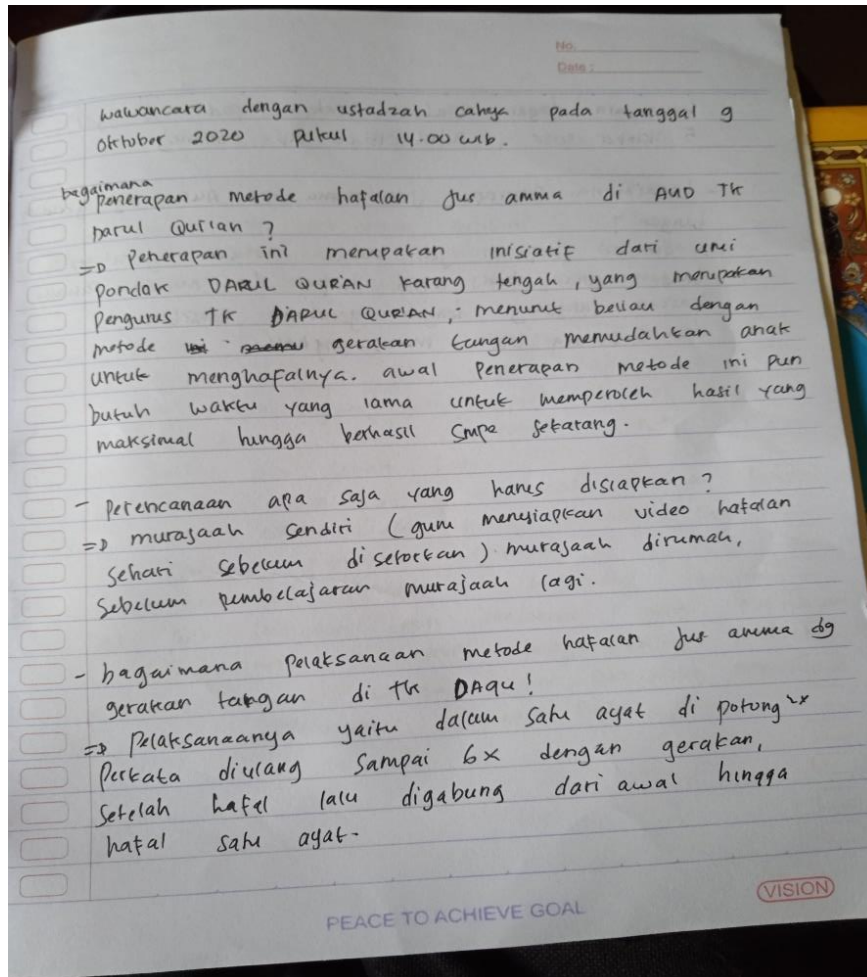 No.
Date :
wawancara dengan ustadzah cahya pada tanggal 9
Oktober 2020 pukul 14.00 wib.
bagaimana
penerapan metode hafalan jus amma di AUD TK
Darul Qur'an ?
=> Penerapan ini merupakan inisiatif dari umi
pondok DARUL QUR'AN karang tengah, yang merupakan
Pengurus TK DARUL QUR'AN, menurut beliau dengan
metode gerakan tangan memudahkan anak
untuk menghafalnya. awal penerapan metode ini pun
butuh waktu yang lama untuk memperoleh hasil yang
maksimal hingga berhasil smpe sekarang.
- Perencanaan apa saja yang harus disiapkan ?
=> murajaah sendiri (guru menyiapkan video hafalan
sehari sebelum disetorkan) murajaah dirumah,
sebelum pembelajaran murajaah lagi.
- bagaimana pelaksanaan metode hafalan jus amma dg
gerakan tangan di TK DAQU !
=> Pelaksanaanya yaitu dalam satu ayat di potong
perkata diulang sampai 6x dengan gerakan,
setelah hafal lalu digabung dari awal hingga
hafal satu ayat.
VISION
PEACE TO ACHIEVE GOAL